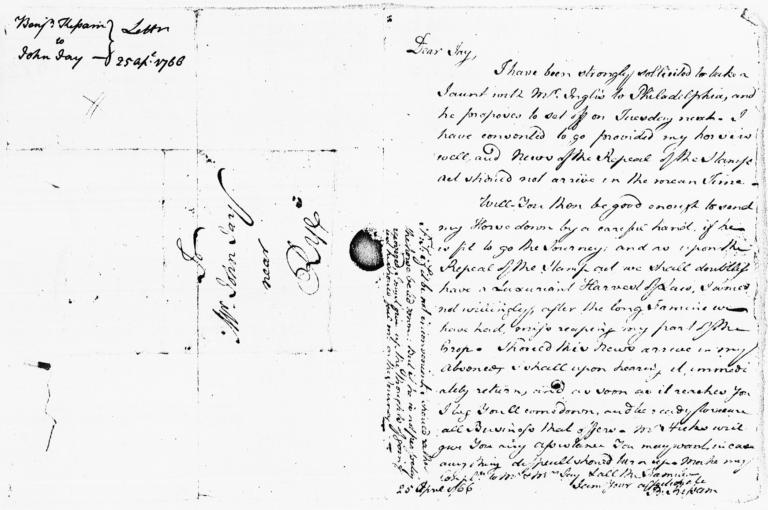 Benjn. Kissam
to
John Jay
Letter
25 Apl. 1766
To
Mr. John Jay
near
Rye
Dear Jay,
I have been strongly sollicited to take a
Jaunt with Mr. Inglis to Philadelphia, and
he proposes to set off on Tuesday next. I
have consented to go provided my horse is
well, and News of the Repeal of the Stamp
act should not arrive in the mean Time.
Will You then be good enough to send
my Horse down by a careful hand, if he
is fit to go the Journey; and as upon the
Repeal of the Stamp act we shall doubtless
have a Luxuriant Harvest of Law, I would
not willingly, after the long Famine we
have had, miss reaping my part of the
Crop. Should this News arrive in my
Absence, I shall upon hearing it, immedi
ately return, and as soon as it reaches You
I beg You'll come down, and be ready to secure
all Business that offers. Mr. Hicks will
give You any assistance You may want, in case
any thing difficult should turn up. Make my
Complts. to Mr. & Mrs. Jay & all the Family
I am Your affectionate
B. Kissam
25 April 1766